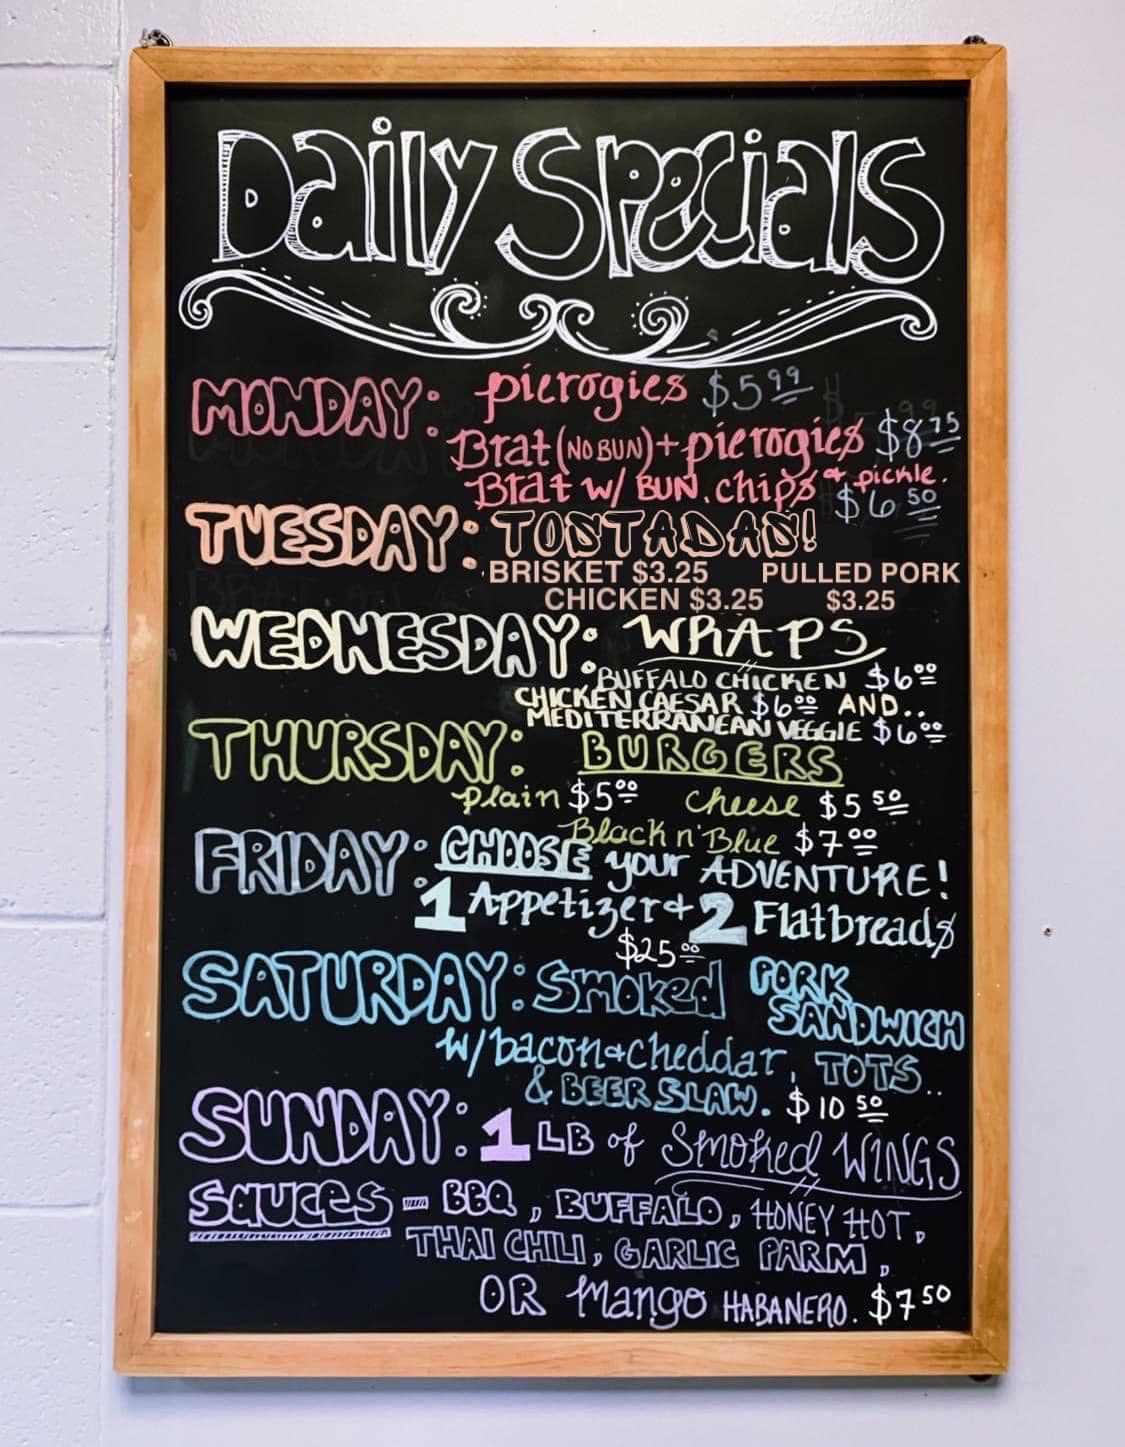 Daily Specials
MONDAY: pierogies $5.99
Brat (NO BUN) + pierogies $8.75
Brat w/ BUN, chips + pickle.
$6.50
TUESDAY: TOSTADAS!
BRISKET $3.25 PULLED PORK
CHICKEN $3.25 $3.25
WEDNESDAY: WRAPS
BUFFALO CHICKEN $6.00
CHICKEN CAESAR $6.00 AND..
MEDITERRANEAN VEGGIE $6.00
THURSDAY: BURGERS
plain $5.00 cheese $5.50
Black n' Blue $7.00
FRIDAY: CHOOSE your ADVENTURE!
1 Appetizer + 2 Flatbreads
$25.00
SATURDAY: Smoked PORK
SANDWICH
w/ bacon + cheddar, TOTS..
& BEER SLAW. $10.50
SUNDAY: 1 LB of Smoked WINGS
SAUCES - BBQ, BUFFALO, HONEY HOT,
THAI CHILI, GARLIC PARM,
OR Mango HABANERO. $7.50